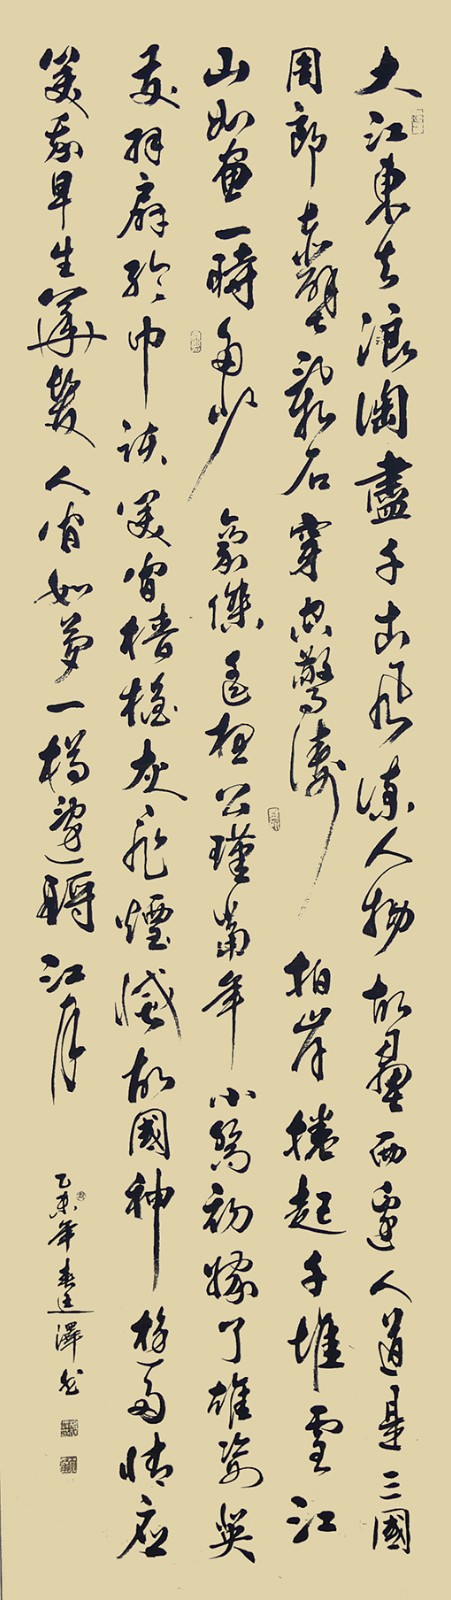 大江東去浪淘盡千古風流人物故壘西邊人道是三國
周郎赤壁亂石穿空驚濤拍岸捲起千堆雪江
山如畫一時多少豪傑遙想公瑾當年小喬初嫁了雄姿英
發羽扇綸巾談笑間檣櫓灰飛煙滅故國神遊多情應
笑我早生華髮人間如夢一樽還酹江月
乙未年春澤書